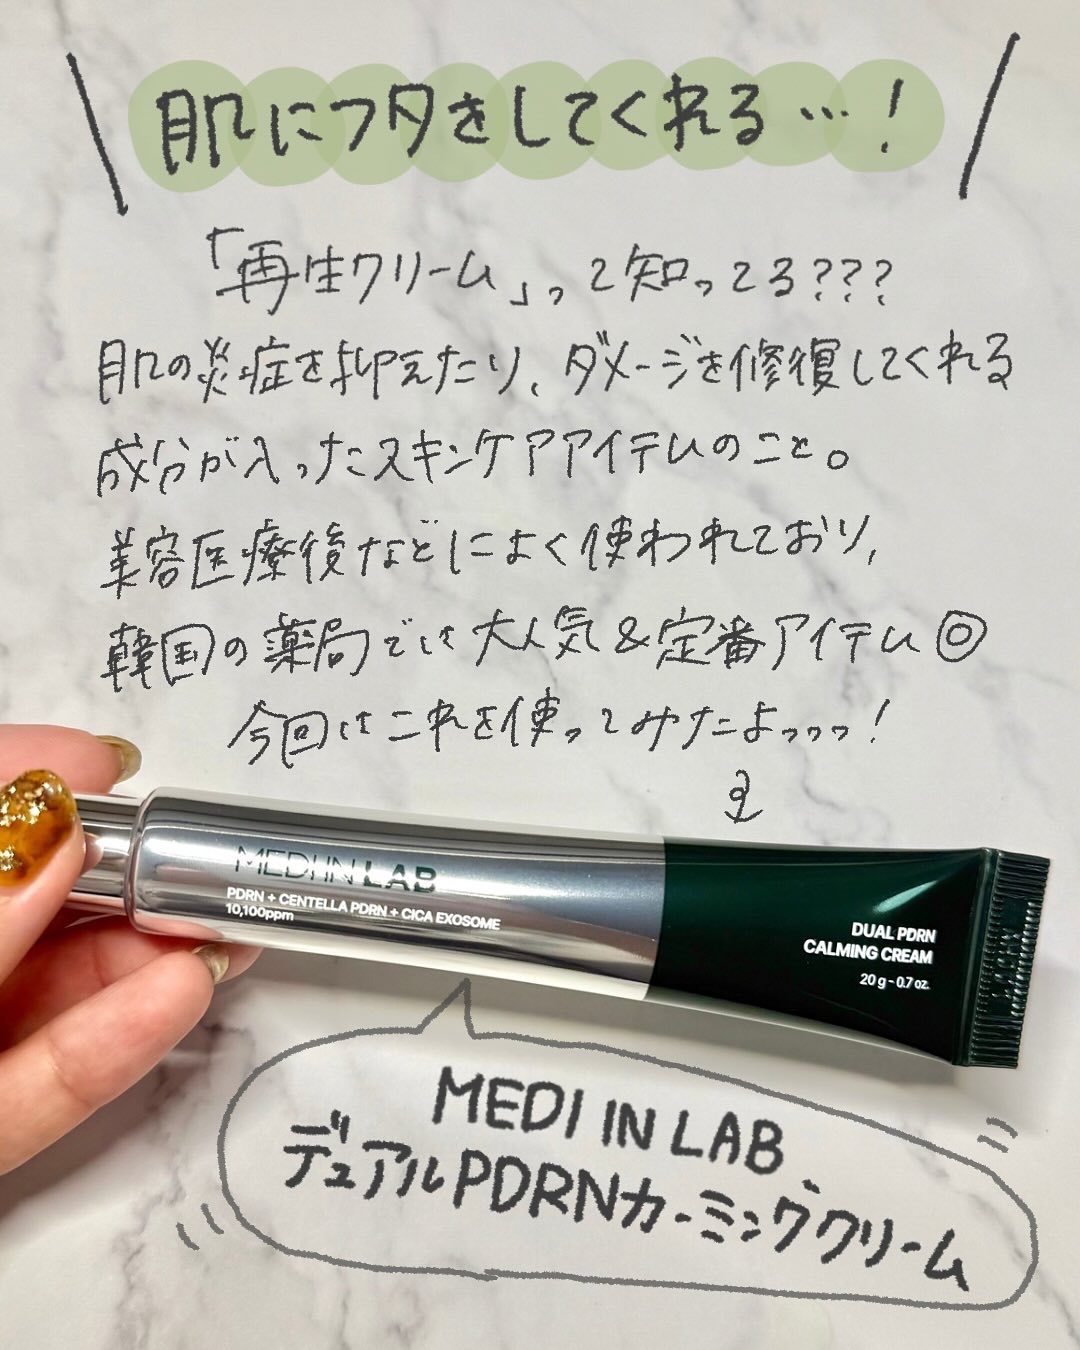 肌にフタをしてくれる…!
「再生クリーム」って知ってる???
肌の炎症を抑えたり、ダメージを修復してくれる
成分が入ったスキンケアアイテムのこと。
美容医療後などによく使われており、
韓国の薬局では大人気&定番アイテム◎
今回はこれを使ってみたよっっっ!
MEDI IN LAB
PDRN + CENTELLA PDRN + CICA EXOSOME
10,100ppm
DUAL PDRN
CALMING CREAM
20 g - 0.7 oz.
MEDI IN LAB
デュアルPDRNカーミングクリーム